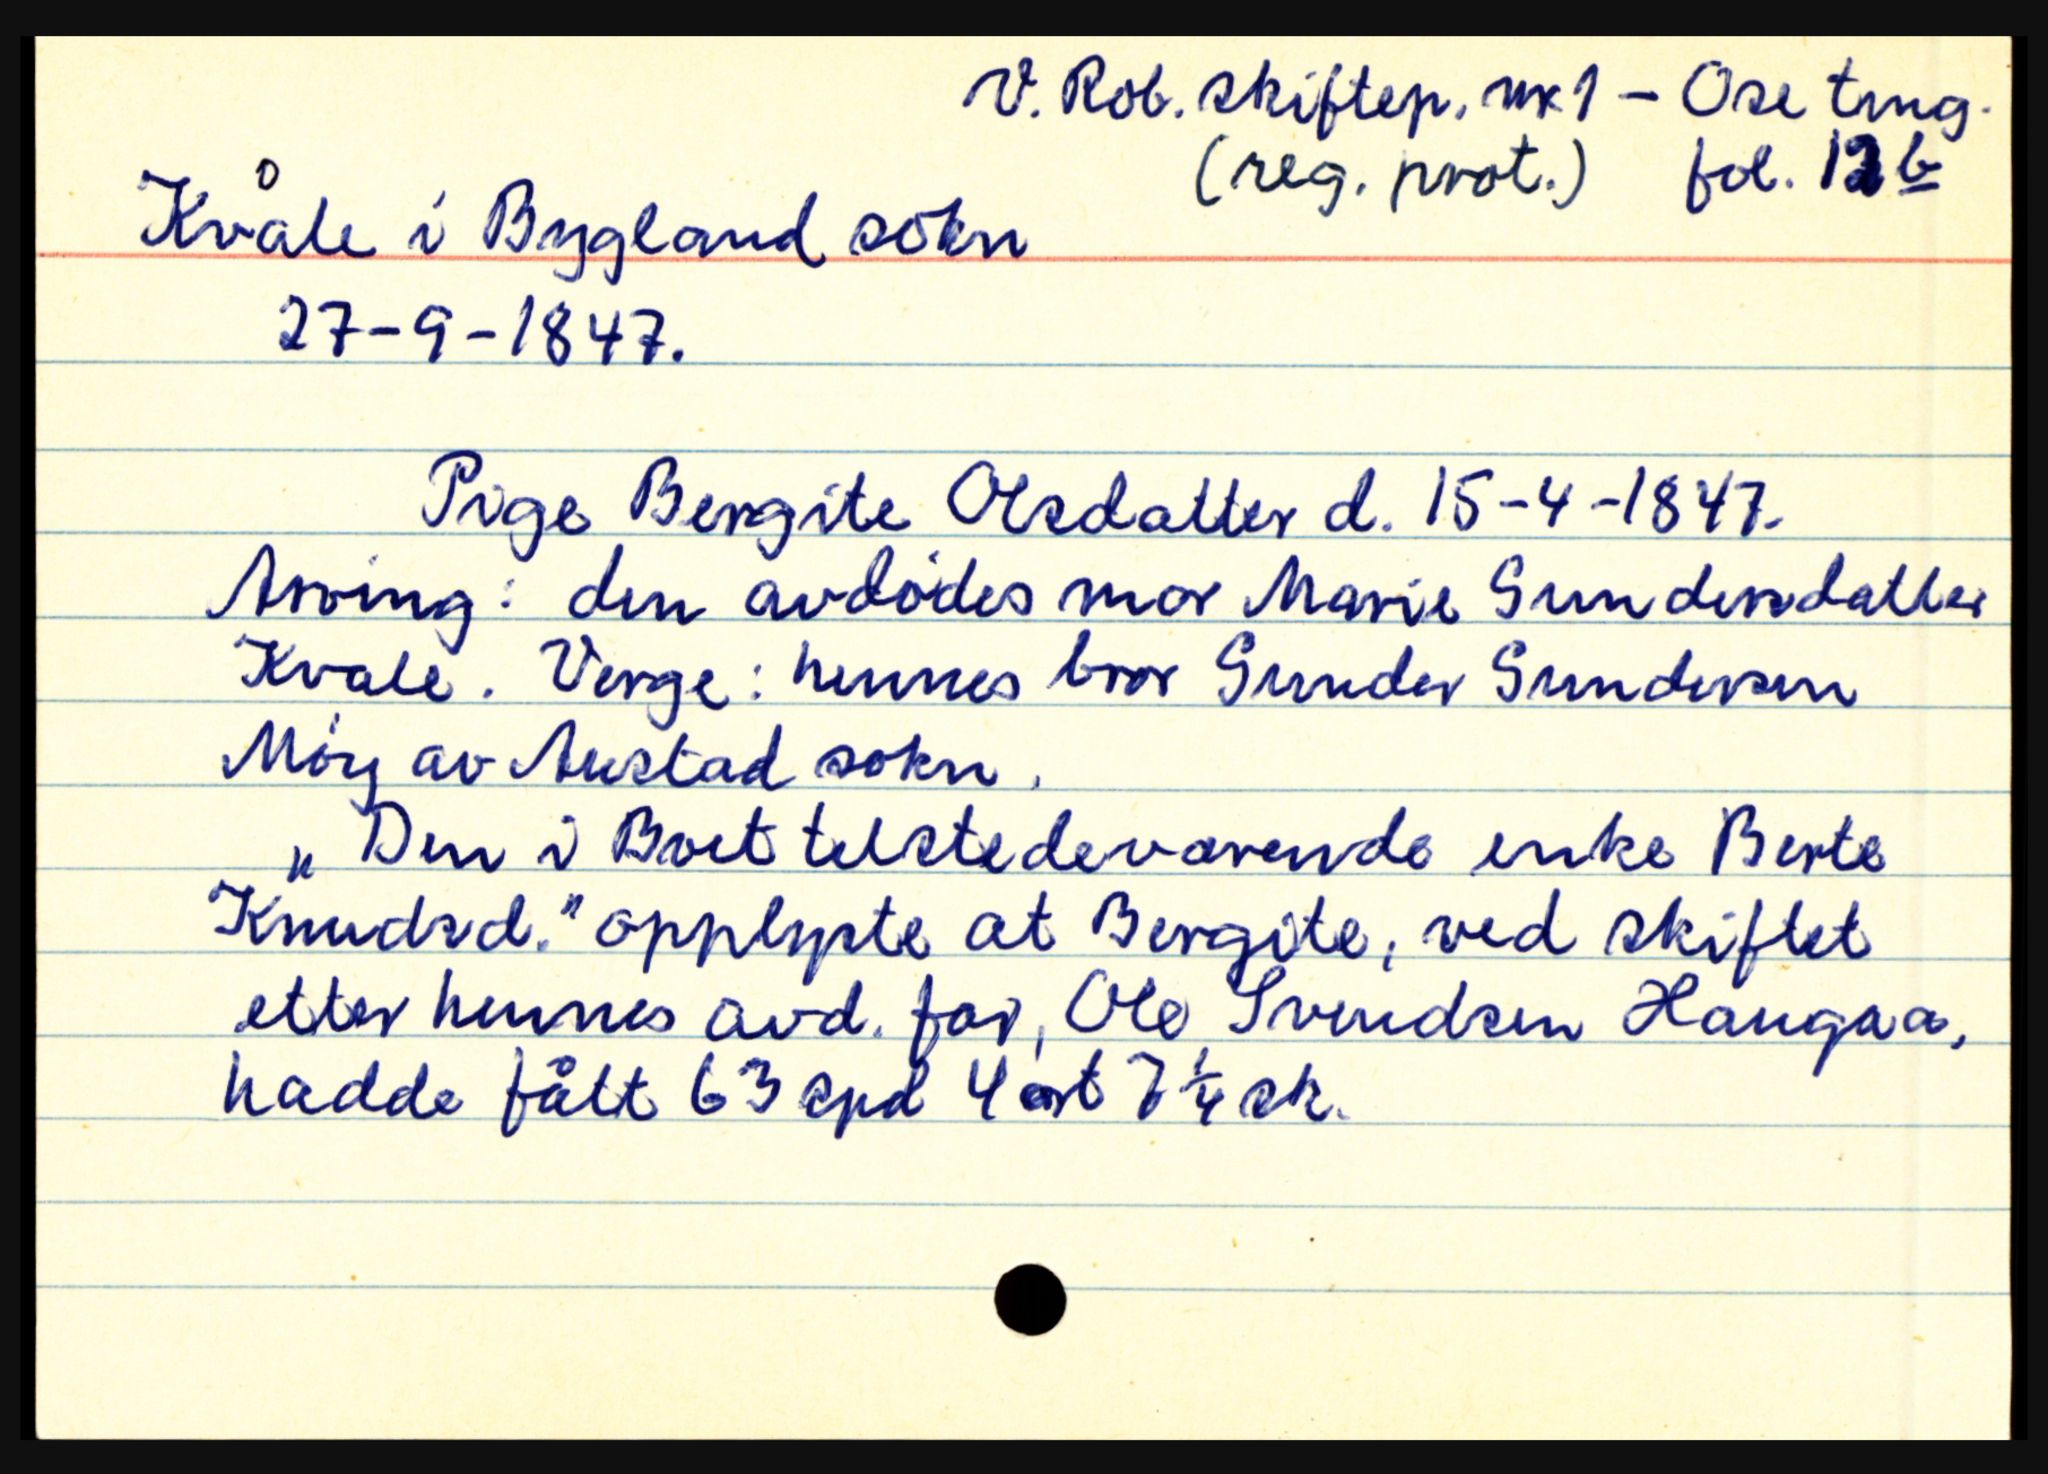 V. Rob. skiftep. nr 1 – Ose ting.
(reg. prot.) fol. 12b
Kvåle i Bygland sokn
27-9-1847.
Pige Bergite Olsdatter d. 15-4-1847.
Arving: den avdødes mor Marie Gundersdatter
Kvale. Verge: hennes bror Gunder Gundersen
Møy av Austad sokn.
„Den i Boet telstedeværende enke Berte
Knudsd." opplyste at Bergite, ved skiftet
etter hennes avd. far, Ole Svendsen Haugaa,
hadde fått 63 spd 4 ort 7 1/4 sk.